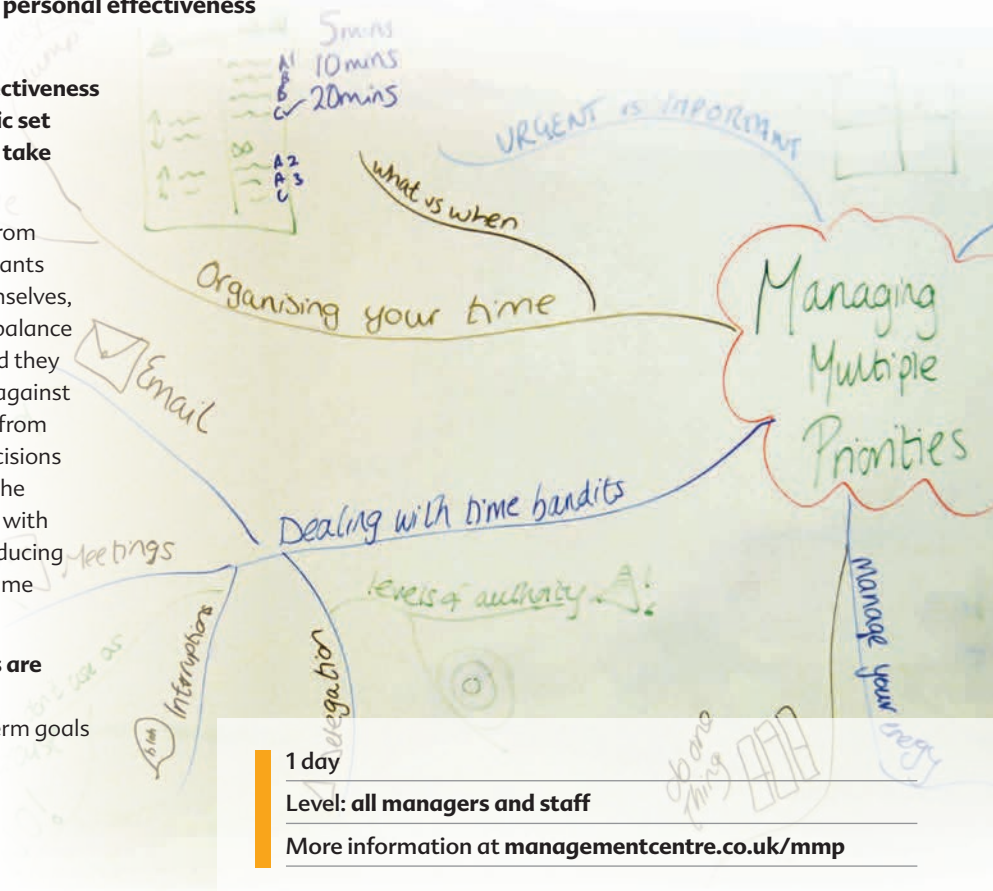 personal effectiveness
ectiveness
ic set
take
rom
ants
nselves,
balance
d they
against
from
cisions
he
with
ducing
me
s are
erm goals
5mins
10mins
20mins
A1
B
B
C
A2
A3
C
what vs when
URGENT vs IMPORTANT
Organising your time
Managing
Multiple
Priorities
Email
Dealing with time bandits
Meetings
Interruptions
blah
Delegation
levels of authority
Manage your
energy
1 day
Level: all managers and staff
More information at managementcentre.co.uk/mmp